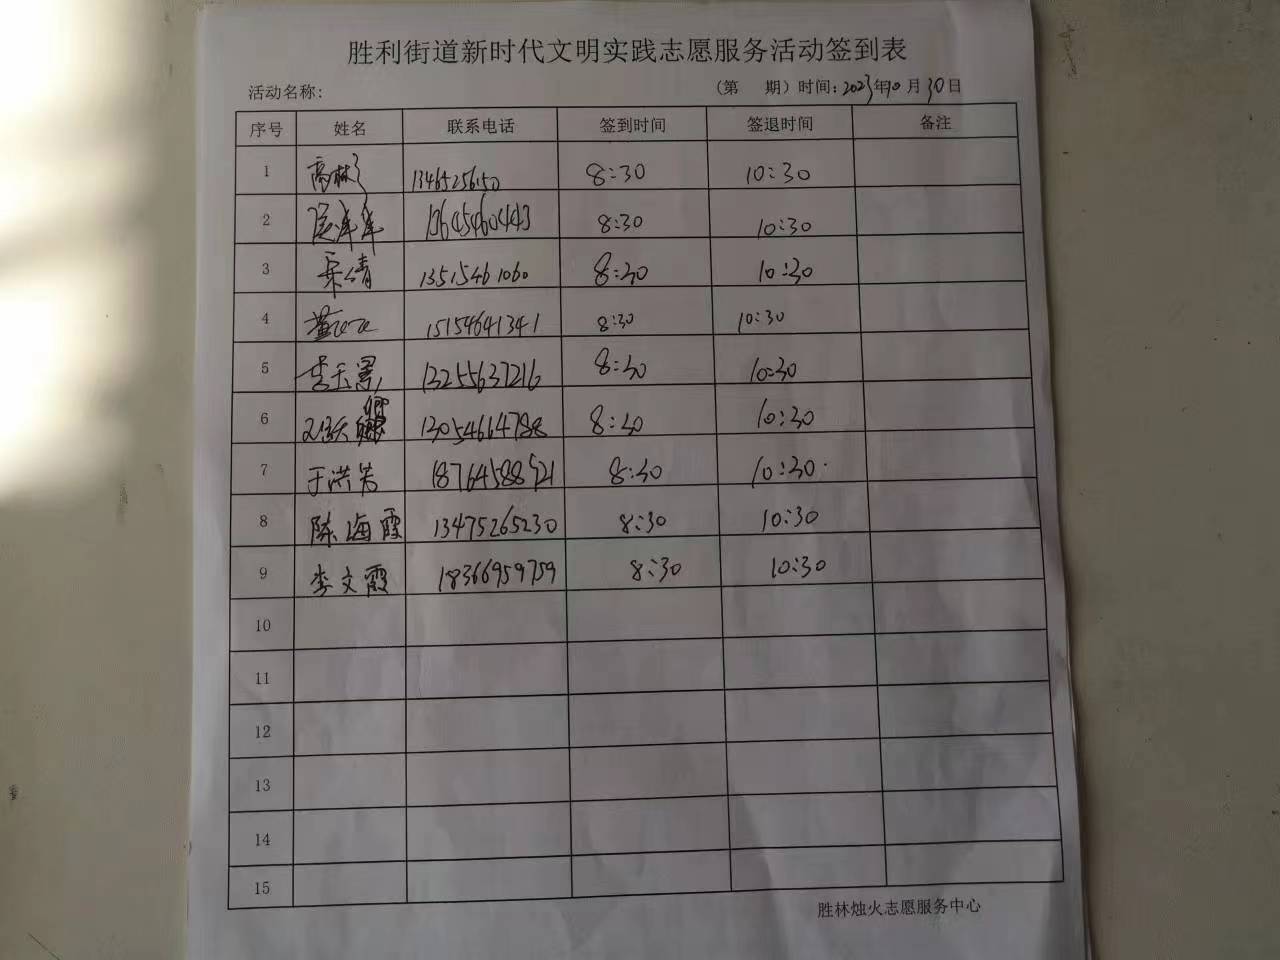 胜利街道新时代文明实践志愿服务活动签到表
活动名称: (第 期) 时间: 2023年10月30日
序号 姓名 联系电话 签到时间 签退时间 备注
1 高林 13465256150 8:30 10:30
2 13645460443 8:30 10:30
3 13515461060 8:30 10:30
4 15154641341 8:30 10:30
5 13255637216 8:30 10:30
6 13054664788 8:30 10:30
7 于洪芳 18764588921 8:30 10:30
8 陈海霞 13475265230 8:30 10:30
9 李文霞 18366959759 8:30 10:30
10
11
12
13
14
15
胜林烛火志愿服务中心